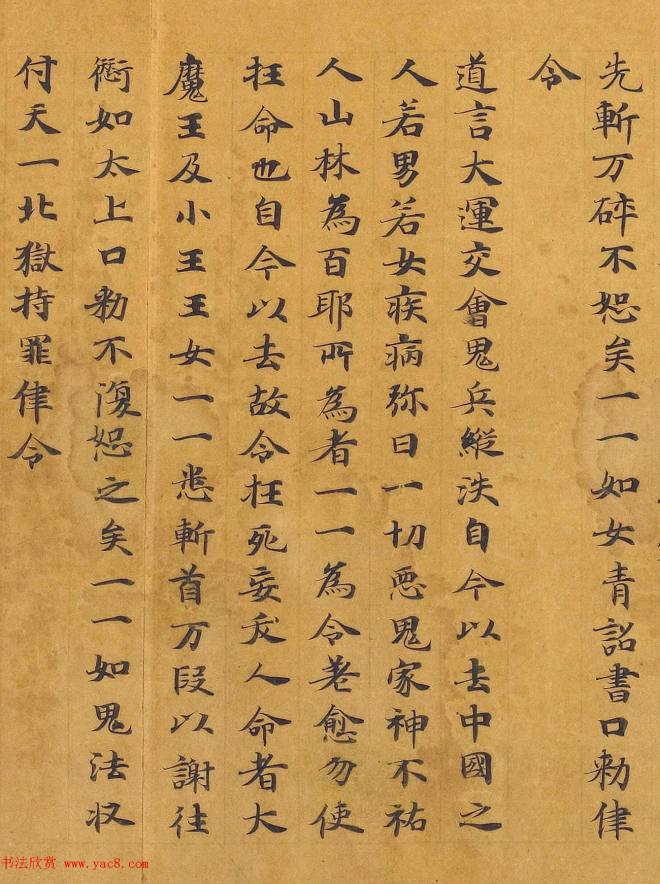 先斬万碎不恕矣一一如女青詔書口勑律
令
道言大運交會鬼兵縱泆自今以去中國之
人若男若女疾病弥日一切恶鬼家神不祐
人山林為百耶所為者一一為令差愈勿使
枉命也自今以去故令枉死妄人命者大
魔王及小王王女一一悉斬首万段以謝往
如太上口勑不復恕之矣一一如鬼法収
付天一北獄持罪律令
书法欣赏 www.yac8.com